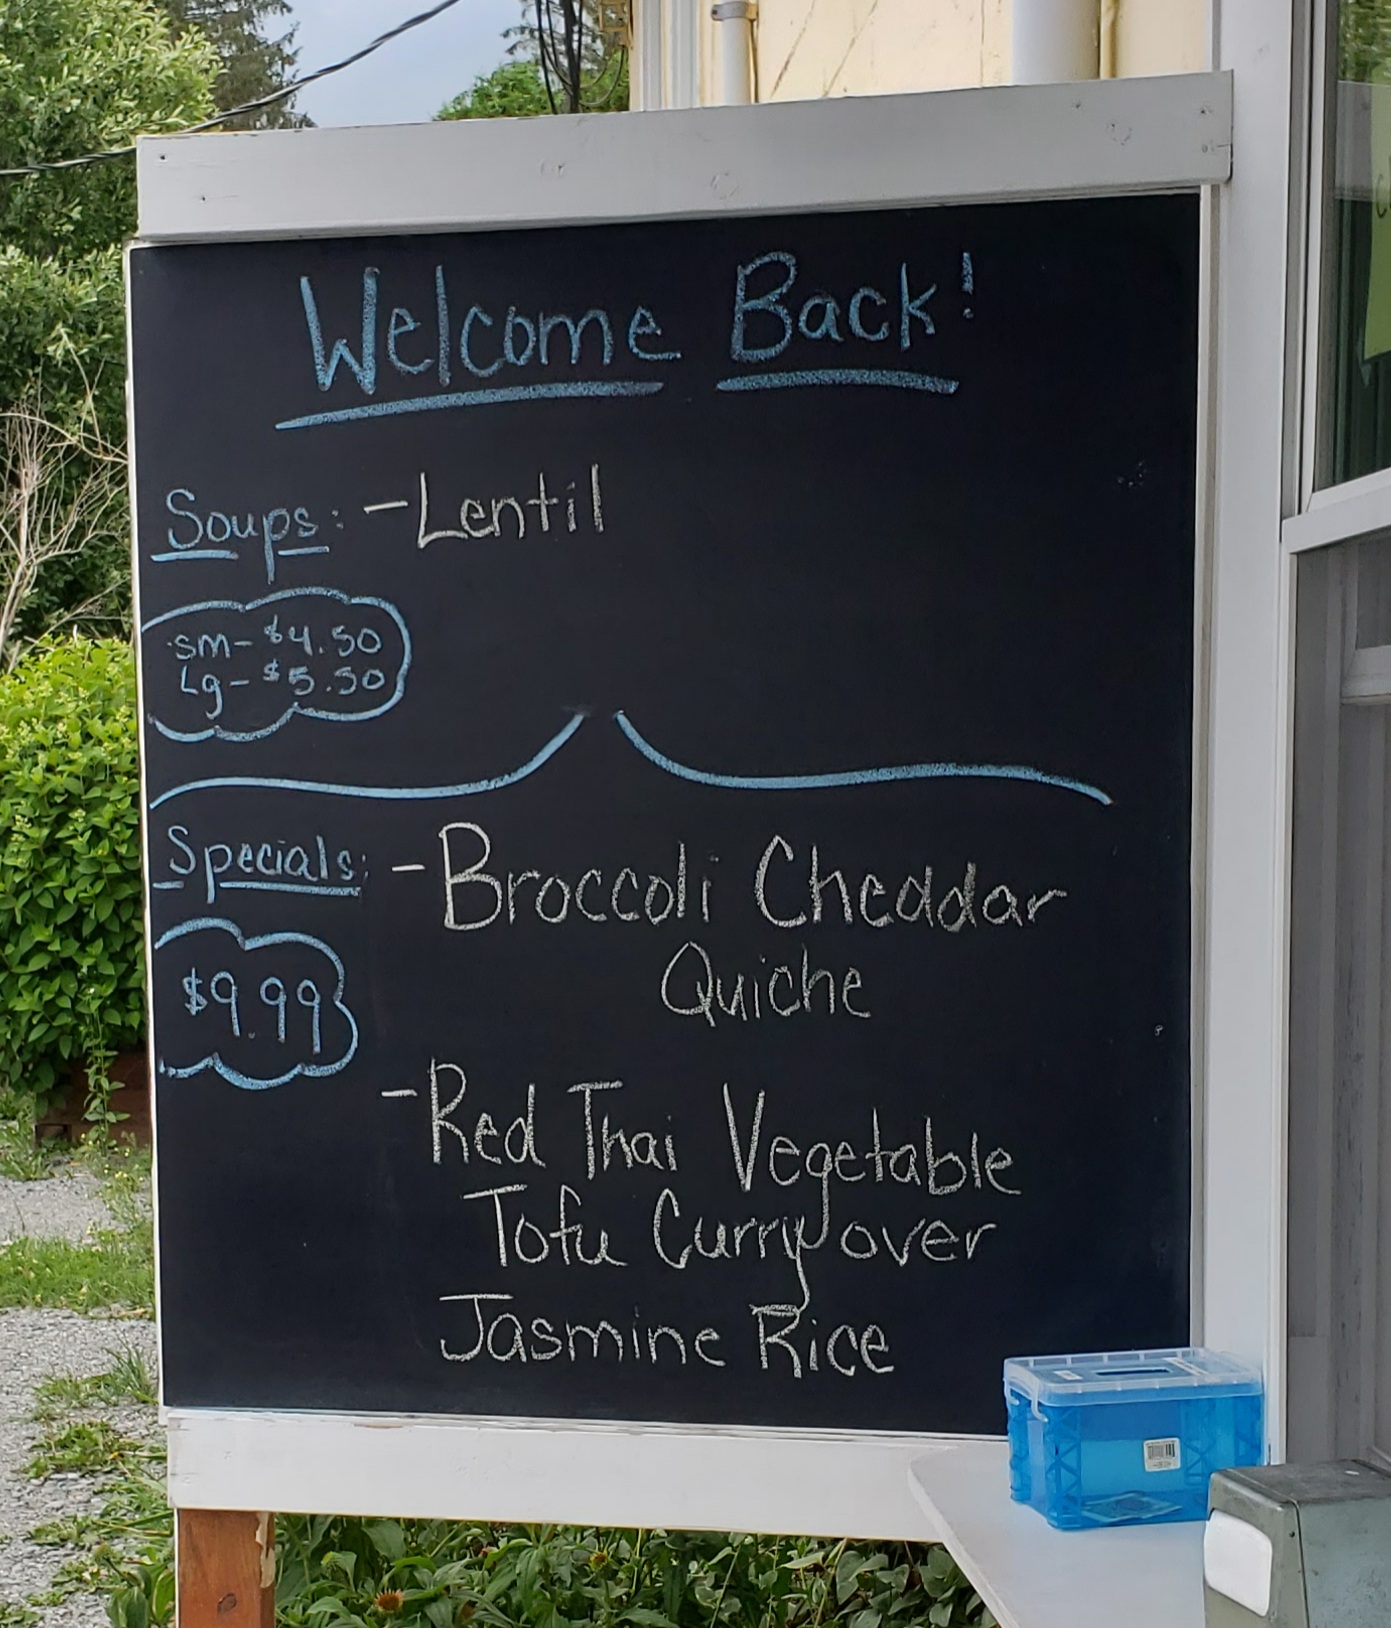 Welcome Back!
Soups: - Lentil
sm - $4.50
Lg - $5.50
Specials: - Broccoli Cheddar
Quiche
$9.99
- Red Thai Vegetable
Tofu Curry over
Jasmine Rice